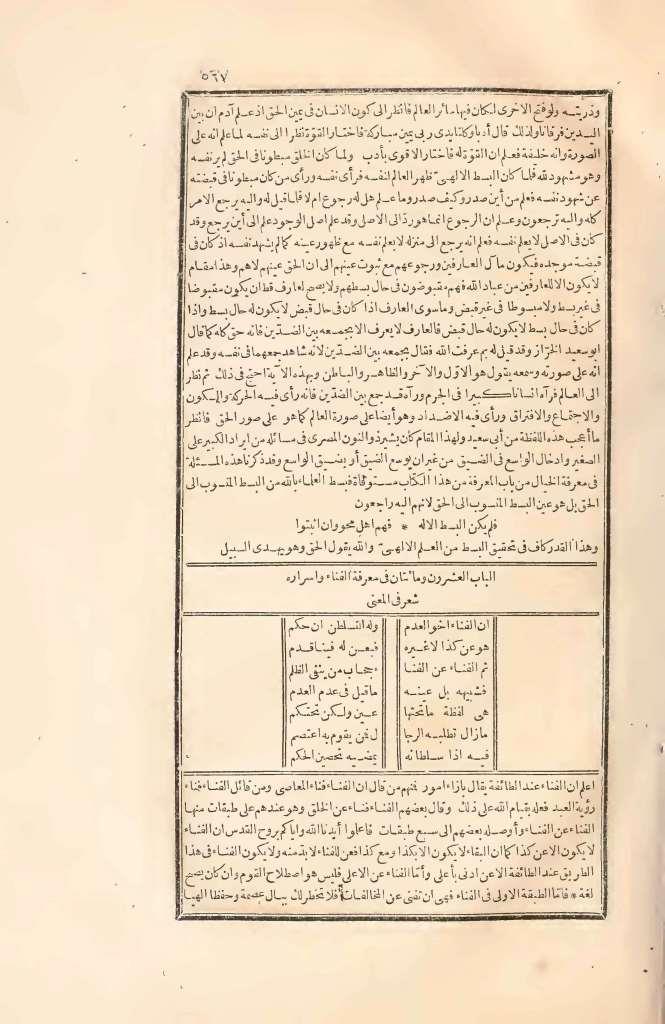 ٥٦٧
وذريته ولو فتح الاخرى لكان فيها سائر العالم فانظر الى كون الانسان فى يمين الحق اذ علم آدم ان بين
اليدين فرقانا ولذلك قال أدبا وكلتا يدى ربى يمين مباركة فاختار القوة نظرا الى نفسه لما علم انه على
الصورة وانه خليفة فعلم ان القوة له فاختار الاقوى بأدب ولما كان الخلق مبطونا فى الحق لم ير نفسه
وهو مشهود فلما كان البسط الالهىّ ظهر العالم لنفسه فرأى نفسه ورأى من كان مبطونا فى قبضته
عن شهود نفسه فعلم من أين صدر وكيف صدر وما علم هل له رجوع ام لا فلما قيل له واليه يرجع الامر
كله واليه ترجعون وعلم ان الرجوع انما هو رد الى الاصل وقد علم اصل الوجود علم الى أين يرجع وقد
كان فى الاصل لا يعلم نفسه فعلم انه يرجع الى منزله لا يعلم نفسه مع ظهور عينه كما لم يشهد نفسه اذ كان فى
قبضة موجده فيكون مآل العارفين ورجوعهم مع ثبوت عينهم الى ان الحق عينهم لا هم وهذا مقام
لا يكون الا للعارفين من عباد الله فهم مقبوضون فى حال بسطهم ولا يصح لعارف قط ان يكون مقبوضا
فى غير بسط ولا مبسوطا فى غير قبض وما سوى العارف اذا كان فى حال قبض لا يكون له حال بسط واذا
كان فى حال بسط لا يكون له حال قبض فالعارف لا يعرف الا بجمعه بين الضدّين فانه حق كله كما قال
ابو سعيد الخرّاز وقد قيل له بم عرفت الله فقال بجمعه بين الضدّين لانه شاهد جمعهما فى نفسه وقد علم
انه على صورته وسمعه يقول هو الاول والآخر والظاهر والباطن وبهذه الآية احتج فى ذلك ثم نظر
الى العالم فرآه انسانا كبيرا فى الجرم ورآه قد جمع بين الضدّين فانه رأى فيه الحركة والسكون
والاجتماع والافتراق ورأى فيه الاضداد وهو أيضا على صورة العالم كما هو على صور الحق فانظر
ما أعجب هذه اللفظة من أبى سعيد ولهذا المقام كان يشير ذو النون المصرى فى مسائله من ايراد الكبير على
الصغير وادخال الواسع فى الضيق من غير ان يوسع الضيق أو يضيق الواسع وقد ذكرنا هذه المسئلة
فى معرفة الخيال من باب المعرفة من هذا الكتاب مستوفاة فبسط العلماء بالله من البسط المنسوب الى
الحق بل هو عين البسط المنسوب الى الحق لانهم اليه راجعون
فلم يكن البسط الا له * فهم اهل محو وان اثبتوا
وهذا القدر كاف فى تحقيق البسط من العلم الالهىّ والله يقول الحق وهو يهدى السبيل
الباب العشرون ومائتان فى معرفة الفناء واسراره
شعر فى المعنى
ان الفناء اخو العدم وله التسلطن ان حكم
هو عن كذا لا غيره فبعن له فينا قدم
ثم الفناء عن الفنا ء حجاب من ينفى الظلم
فشبيهه بل عينه ما قيل فى عدم العدم
هى لفظة ما تحتها عين ولكن تحتكم
ما زال تطلبه الرجا ل فمن يقوم به اعتصم
فيه اذا سلطانه يمضيه تحصين الحكم
اعلم ان الفناء عند الطائفة يقال بازاء امور فمنهم من قال ان الفناء فناء المعاصى ومن قائل الفناء فناء
رؤية العبد فعله بقيام الله على ذلك وقال بعضهم الفناء فناء عن الخلق وهو عندهم على طبقات منها
الفناء عن الفناء وأوصله بعضهم الى سبع طبقات فاعلموا أيدنا الله واياكم بروح القدس ان الفناء
لا يكون الا عن كذا كما ان البقاء لا يكون الا بكذا ومع كذا فعن للفناء لا بد منه ولا يكون الفناء فى هذا
الطريق عند الطائفة الا عن ادنى بأعلى وأمّا الفناء عن الاعلى فليس هو اصطلاح القوم وان كان يصح
لغة * فامّا الطبقة الاولى فى الفناء فهى ان تفنى عن المخالفات فلا تخطر لك ببال عصمة وحفظا الهيا